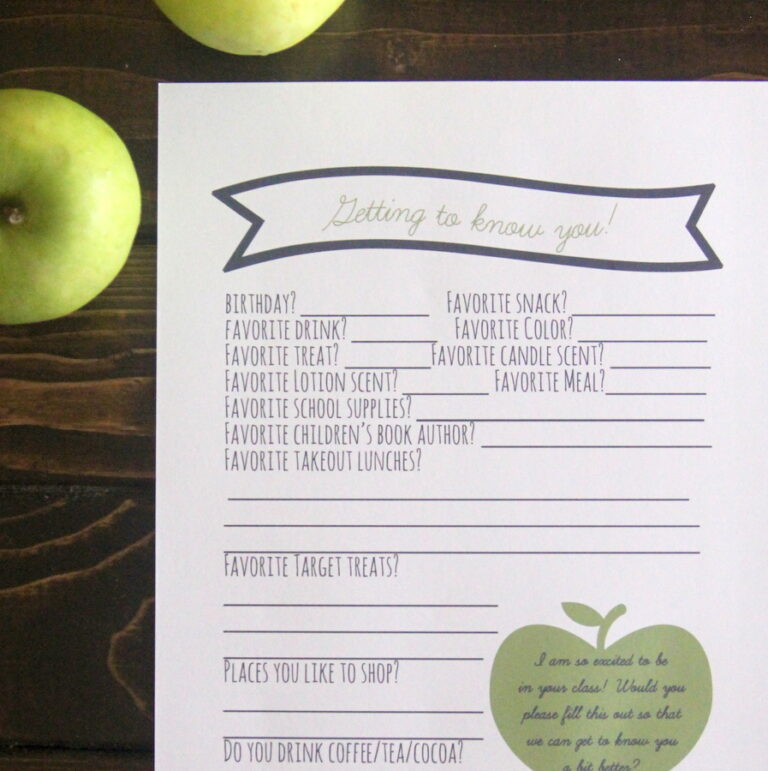 Getting to know you!
BIRTHDAY? FAVORITE SNACK?
FAVORITE DRINK? FAVORITE COLOR?
FAVORITE TREAT? FAVORITE CANDLE SCENT?
FAVORITE LOTION SCENT? FAVORITE MEAL?
FAVORITE SCHOOL SUPPLIES?
FAVORITE CHILDREN'S BOOK AUTHOR?
FAVORITE TAKEOUT LUNCHES?
FAVORITE TARGET TREATS?
PLACES YOU LIKE TO SHOP?
DO YOU DRINK COFFEE/TEA/COCOA?
I am so excited to be
in your class! Would you
please fill this out so that
we can get to know you
a bit better?